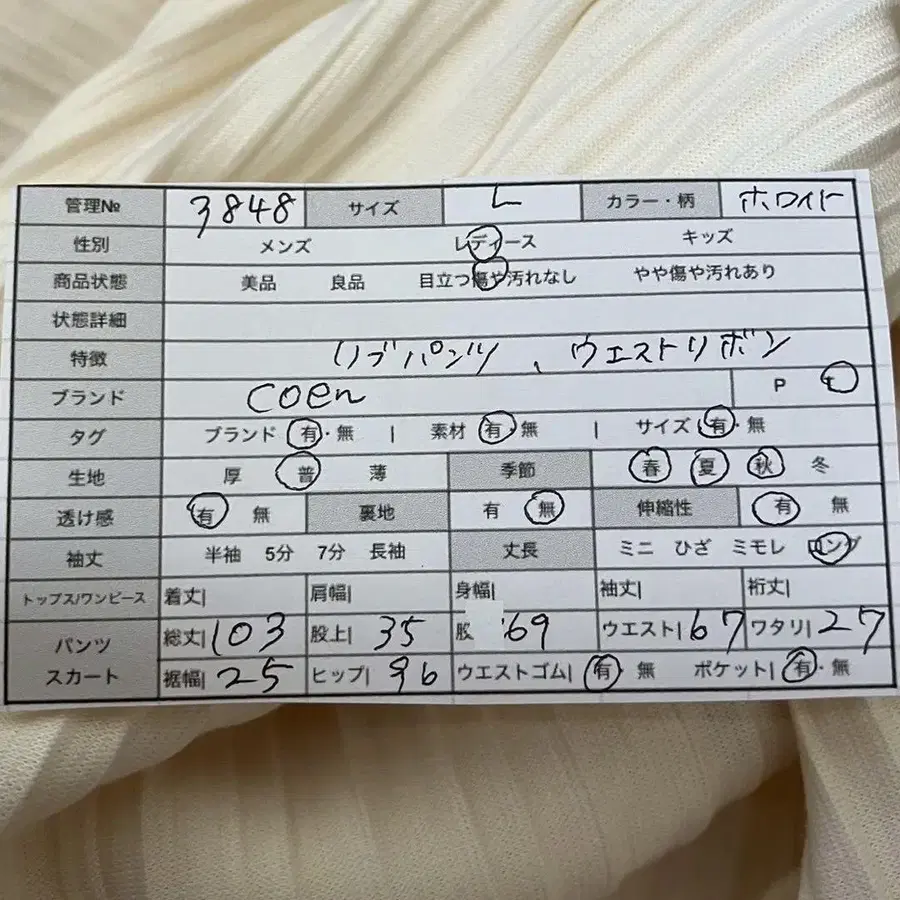 管理№ 3848 サイズ L カラー・柄 ホワイト
性別 メンズ レディース キッズ
商品状態 美品 良品 目立つ傷や汚れなし やや傷や汚れあり
状態詳細
特徴 リブパンツ、ウエストリボン
ブランド coen P
タグ ブランド 有・無 | 素材 有・無 | サイズ 有・無
生地 厚 普 薄 季節 春 夏 秋 冬
透け感 有 無 裏地 有 無 伸縮性 有 無
袖丈 半袖 5分 7分 長袖 丈長 ミニ ひざ ミモレ ロング
トップス/ワンピース 着丈| 肩幅| 身幅| 袖丈| 裄丈|
パンツ 総丈| 103 股上| 35 股 69 ウエスト| 67 ワタリ| 27
スカート 裾幅| 25 ヒップ| 96 ウエストゴム| 有 無 ポケット| 有・無